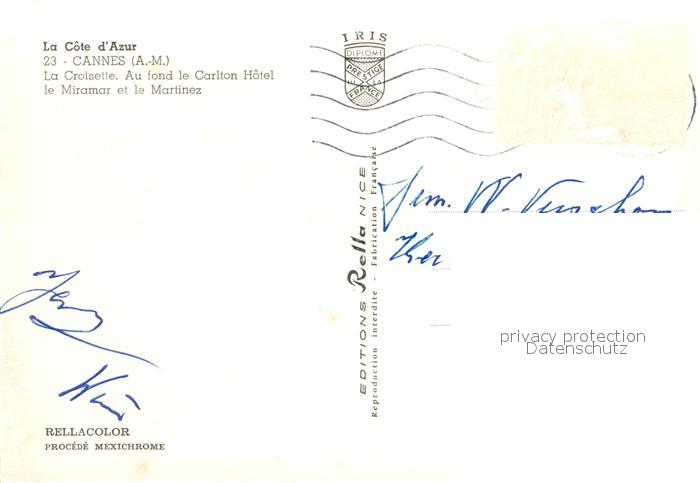 La Côte d'Azur
23 - CANNES (A.-M.)
La Croisette. Au fond le Carlton Hôtel
le Miramar et le Martinez
IRIS
DIPLOME
PRESTIGE
DE LA
FRANCE
EDITIONS Rella NICE
Reproduction interdite - Fabrication Française
Fam. W.
privacy protection
Datenschutz
RELLACOLOR
PROCÉDÉ MEXICHROME